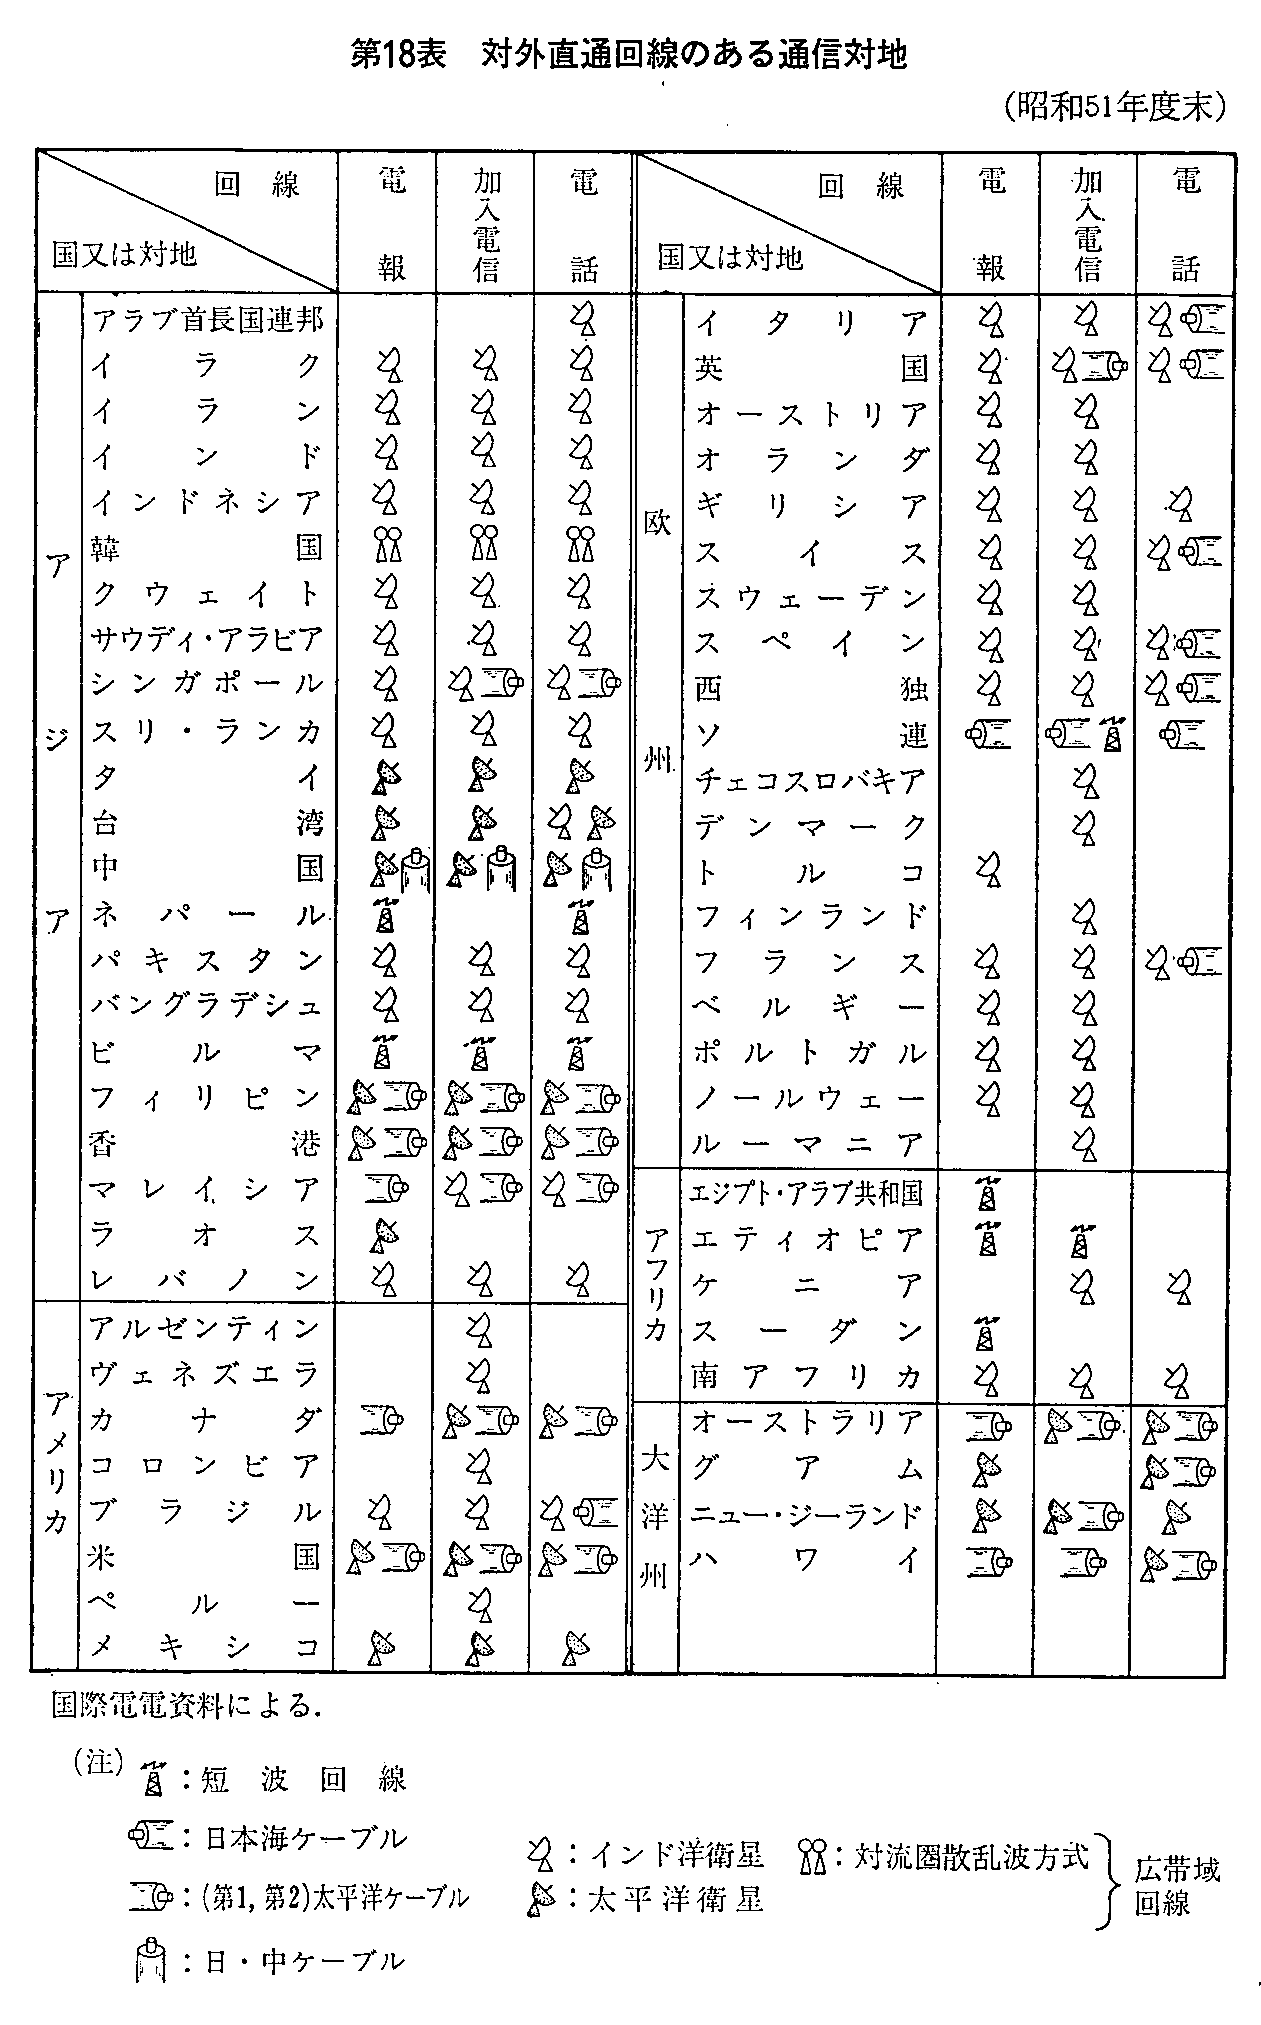 第18表 対外直通回線のある通信対地
(昭和51年度末)
回線 電報 加入電信 電話
国又は対地
回線 電報 加入電信 電話
国又は対地
アジア
アラブ首長国連邦
イラク
イラン
インド
インドネシア
韓国
クウェイト
サウディ・アラビア
シンガポール
スリ・ランカ
タイ
台湾
中国
ネパール
パキスタン
バングラデシュ
ビルマ
フィリピン
香港
マレイシア
ラオス
レバノン
アメリカ
アルゼンティン
ヴェネズエラ
カナダ
コロンビア
ブラジル
米国
ペルー
メキシコ
欧州
イタリア
英国
オーストリア
オランダ
ギリシア
スイス
スウェーデン
スペイン
西独
ソ連
チェコスロバキア
デンマーク
トルコ
フィンランド
フランス
ベルギー
ポルトガル
ノールウェー
ルーマニア
アフリカ
エジプト・アラブ共和国
エティオピア
ケニア
スーダン
南アフリカ
大洋州
オーストラリア
グアム
ニュー・ジーランド
ハワイ
国際電電資料による.
(注)
:短波回線
:日本海ケーブル
:(第1,第2)太平洋ケーブル
:日・中ケーブル
:インド洋衛星
:太平洋衛星
:対流圏散乱波方式
広帯域
回線